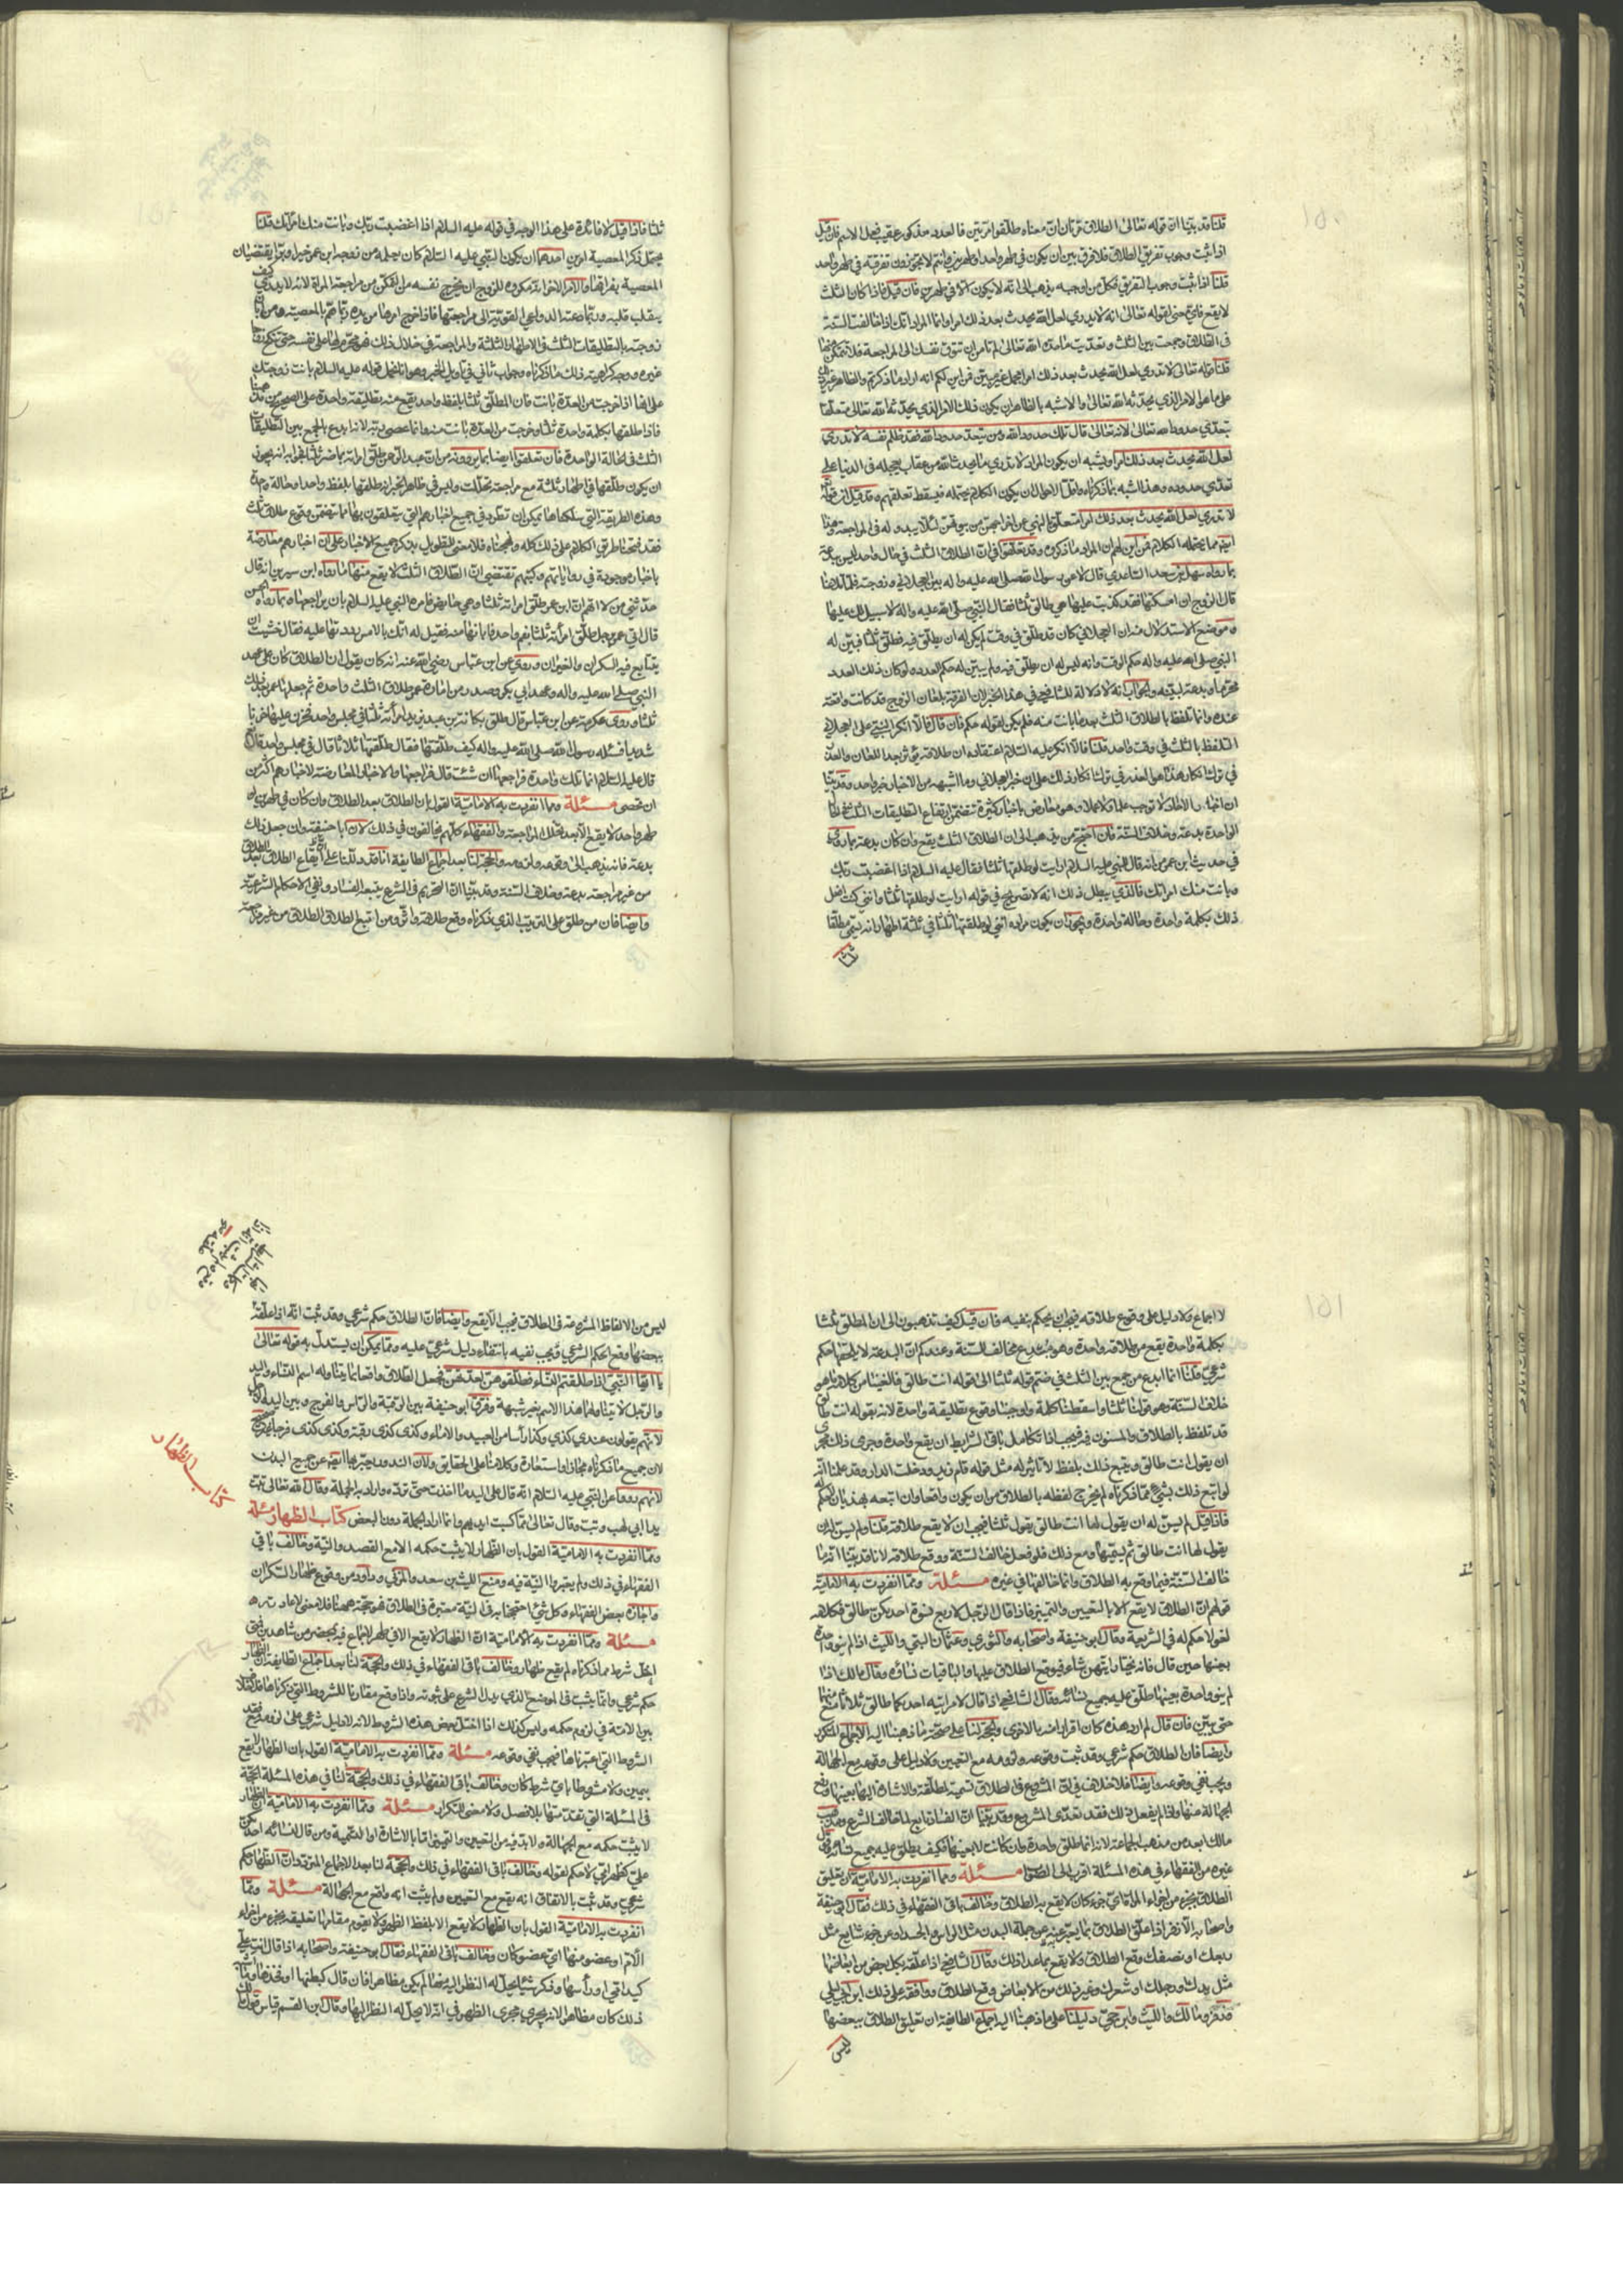 قلنا قد بينا ان قوله تعالى الطلاق مرتان ان معناه طلقوا مرتين فالعدد مذكور عقيب فعل الاسم فان قيل
اذا ثبت وجوب تفريق الطلاق فلا فرق بين ان يكون في طهر واحد او طهرين وانتم لا تجوزون تفرقته في طهر واحد
قلنا اذا ثبت وجوب التفريق فكل من اوجبه يذهب الى انه لا يكون الا في طهرين فان قيل فاذا كان الثلث
لا يقع فاي معنى لقوله تعالى انه لا تدري لعل الله يحدث بعد ذلك امرا وانما المراد انك اذا خالفت السنة
في الطلاق وجمعت بين الثلث وتعديت ما حده الله تعالى لم تامن ان تتوق نفسك الى المراجعة فلا تتمكن منها
قلنا قوله تعالى لا تدري لعل الله يحدث بعد ذلك امرا مجمل غير مبين فمن اين لكم انه اراد ما ذكرتم والظاهر غير دال
على ما هو الامر الذي يحدثه الله تعالى والاشبه بالظاهر ان يكون ذلك الامر الذي يحدثه الله تعالى متعلقا
بتعدي حدود الله تعالى لانه تعالى قال تلك حدود الله ومن يتعد حدود الله فقد ظلم نفسه لا تدري
لعل الله يحدث بعد ذلك امرا ويشبه ان يكون المراد لا تدري ما يحدث الله من عقاب يعجله في الدنيا على
تعدي حدوده وهذا اشبه بما ذكرناه واقل الاحوال ان يكون الكلام يحتمله فيسقط تعلقهم وقد قيل ان قوله
لا تدري لعل الله يحدث بعد ذلك امرا متعلق بالنهي عن اخراجهن من بيوتهن لئلا يبدو له في المراجعة وهذا
ايضا مما يحتمله الكلام فمن اين لهم ان المراد ما ذكروه وقد تعلق في ان الطلاق الثلث في حال واحد ليس ببدعة
بما رواه سهل بن سعد الساعدي قال لاعن رسول الله صلى الله عليه واله بين العجلاني وزوجته فلما تلاعنا
قال الزوج ان امسكتها فقد كذبت عليها هي طالق ثلثا فقال النبي صلى الله عليه واله لا سبيل لك عليها
وموضع الاستدلال منه ان العجلاني كان قد طلق في وقت لم يكن له ان يطلق فيه فطلق ثلثا فبين له
النبي صلى الله عليه واله حكم الوقت وانه ليس له ان يطلق فيه ولم يبين له حكم العدد ولو كان ذلك العدد
محرما وبدعة لبينه والجواب انه لا دلالة للشافعي في هذا الخبر لان الفرقة بلعان الزوج قد كانت واقعة
عنده وانما تلفظ بالطلاق الثلث بعد ما بانت منه فلم يكن لقوله حكم فان قال الا انكر النبي على العجلاني
التلفظ بالثلث في وقت واحد قلنا فالا انكر عليه السلام اعتقاده ان طلاقه يؤثر بعد اللعان والعذر
في ترك انكار هذا هو العذر في ترك انكار ذلك على ان خبر العجلاني وما اشبهه من الاخبار خبر واحد وقد بينا
ان اخبار الاحاد لا توجب علما ولا عملا وهو معارض باخبار كثيرة تتضمن ايقاع التطليقات الثلث في الحال
الواحدة بدعة وخلاف السنة فان احتج من يذهب الى ان الطلاق الثلث يقع وان كان بدعة بما روي
في حديث ابن عمر من انه قال للنبي عليه السلام ارايت لو طلقتها ثلثا فقال عليه السلام اذا اغضبت ربك
وبانت منك امراتك فالذي يبطل ذلك انه لا تصريح في قوله ارايت لو طلقتها ثلثا فانني كنت افعل
ذلك بكلمة واحدة وحالة واحدة ويجوز ان يكون مراده انني لو طلقتها ثلثا في ثلثة اطهار انه يسمى مطلقا
ثلثا
ثلثا فاذا قيل لا فائدة على هذا الوجه في قوله عليه السلام اذا اغضبت ربك وبانت منك امراتك قلنا
يحتمل ذكر المعصية امرين احدهما ان يكون النبي عليه السلام كان يعلم من زوجة ابن عمر خيرا وبرا يقتضيان
المعصية بفراقها والامر الاخر انه مكروه للزوج ان يخرج نفسه من التمكن من مراجعة المراة لانه لا يدري كيف
يتقلب قلبه وربما دعته الدواعي القوية الى مراجعتها فاذا اخرج امرها من يده ربما هم بالمعصية
زوجته بالتطليقات الثلث في الاطهار الثلثة والمراجعة في خلال ذلك فهو محرم لها على نفسه حتى تنكح زوجا
غيره ووجه كراهية ذلك ما ذكرناه وجواب ثاني في تاويل الخبر وهو انا نحمل قوله عليه السلام بانت زوجتك
على انها اذا خرجت من العدة بانت فان المطلق ثلثا بلفظ واحد يقع منه تطليقة واحدة على الصحيح من مذهبنا
فاذا طلقها بكلمة واحدة ثلثا وخرجت من العدة بانت منه وانما عصى ربه لانه ابدع بالجمع بين التطليقات
الثلث في الحالة الواحدة فان تعلقوا ايضا بما يروونه من ان عبد الرحمن طلق امراته تماضر ثلثا فجوابه انه يجوز
ان يكون طلقها في اطهار ثلثة مع مراجعة تخللت وليس في ظاهر الخبر انه طلقها بلفظ واحد او حالة واحدة
وهذه الطريقة التي سلكناها يمكن ان تطرد في جميع اخبارهم التي يتعلقون بها مما يتضمن وقوع طلاق ثلث
فقد فتحنا طريق الكلام على ذلك كله ونهجناه فلا معنى للتطويل بذكر جميع الاخبار على ان اخبارهم معارضة
باخبار موجودة في رواياتهم وكتبهم تقتضي ان الطلاق الثلث لا يقع منها ما رواه ابن سيرين انه قال
حدثني من لا اتهم ان ابن عمر طلق امراته ثلثا وهي حايض فامره النبي عليه السلام بان يراجعها وبما رواه الحسن
قال اتي عمر برجل طلق امرأته ثلثا بفم واحد فابانها منه فقيل له انك بالامس رددتها عليه فقال خشيت ان
يتتابع فيه السكران والغيران وروي عن ابن عباس رضي الله عنه انه كان يقول ان الطلاق كان على عهد
النبي صلى الله عليه واله وعهد ابي بكر وصدر من امارة عمر طلاق الثلث واحدة ثم جعلها عمر بعد ذلك
ثلثا وروى عكرمة عن ابن عباس قال طلق ركانة بن عبد يزيد امرأته ثلثا في مجلس واحد فحزن عليها حزنا
شديدا فسئله رسول الله صلى الله عليه واله كيف طلقتها فقال طلقتها ثلاثا قال في مجلس واحد قال نعم
قال عليه السلام انما تلك واحدة فراجعها ان شئت قال فراجعها والاخبار المعارضة لاخبارهم اكثر من
ان تحصى مسئلة ومما انفردت به الامامية القول بان الطلاق بعد الطلاق وان كان في طهرين او
طهر واحد لا يقع الا بعد تخلل المراجعة والفقهاء كلهم يخالفون في ذلك لان ابا حنيفة وان جعل ذلك
بدعة فانه يذهب الى وقوعه ولزومه والحجة لنا بعد اجماع الطايفة انا قد دللنا على ان ايقاع الطلاق بعد الطلاق
من غير مراجعة بدعة وخلاف السنة وقد بينا ان التحريم في الشرع يتبعه الفساد ونفي الاحكام الشرعية
وايضا فان من طلق على الترتيب الذي ذكرناه وقع طلاقه واثر ومن اتبع الطلاق الطلاق من غير مراجعة
لا اجماع ولا دليل على وقوع طلاقه فيجب ان يحكم بنفيه فان قيل كيف تذهبون الى ان المطلق ثلثا
بكلمة واحدة يقع من طلاقه واحدة وهو مبدع مخالف للسنة وعندكم ان البدعة لا يلحقها حكم
شرعي قلنا انما ابدع من جمع بين الثلث في ضم قوله ثلثا الى قوله انت طالق فالغينا من كلامه ما هو
خلاف السنة وهو قولنا ثلثا واسقطنا كلمة واوجبنا وقوع تطليقة واحدة لانه بقوله انت طالق
قد تلفظ بالطلاق والمسنون فيه فيجب اذا تكامل باقي الشرايط ان يقع واحدة وجرى ذلك مجرى
ان يقول انت طالق ويتبع ذلك بلفظ لا تاثير له مثل قوله قام زيد ودخلت الدار وقد علمنا انه
لو اتبع ذلك بشيء مما ذكرناه لم يخرج لفظه بالطلاق من ان يكون واقعا وان اتبعه بهذيان لا حكم له
فاذا قيل لم يسن له ان يقول لها انت طالق يقول ثلثا فيجب ان لا يقع طلاقه قلنا ولم يسن له ان
يقول لها انت طالق ثم يشتمها ومع ذلك فلو فعل خالف السنة ووقع طلاقه لانا قد بينا انه ما
خالف السنة فيما وقع به الطلاق وانما خالفها في غيره مسئلة ومما انفردت به الامامية
قولهم ان الطلاق لا يقع الا بالتعيين والتمييز فاذا قال الرجل لاربع نسوة احديكن طالق فكلامه
لغو لا حكم له في الشريعة وقال ابو حنيفة واصحابه والثوري وعثمان البتي والليث اذا لم ينو واحدة
بعينها حين قال فانه يختار ايتهن شاء فيوقع الطلاق عليها والباقيات نساؤه وقال مالك اذا
لم ينو واحدة بعينها طلق عليه جميع نسائه وقال الشافعي اذا قال لامراتيه احديكما طالق ثلاثا منع منهما
حتى يبين فان قال لم ارد هذه كان اقرارا منه بالاخرى والحجة لنا على صحة ما ذهبنا اليه الاجماع المتكرر
وايضا فان الطلاق حكم شرعي وقد ثبت وقوعه ولزومه مع التعيين ولا دليل على وقوعه مع الجهالة
ويجب نفي وقوعه وايضا فلا خلاف في ان المشروع في الطلاق تسمية المطلقة والاشارة اليها بعينها ورفع
الجهالة عنها واذا لم يفعل ذلك فقد تعدى المشروع وقد بينا ان الفساد تابع لما خالف الشرع ومذهب
مالك ابعد من مذهب الجماعة لانه انما طلق واحدة وان كانت لا بعينها فكيف يطلق عليه جميع نسائه وقول
غيره من الفقهاء في هذه المسئلة اقرب الى الصواب مسئلة ومما انفردت به الامامية ان تعليق
الطلاق بجزء من اجزاء المراة اي جزء كان لا يقع به الطلاق وخالف باقي الفقهاء في ذلك فقال ابو حنيفة
واصحابه الا زفر اذا علق الطلاق بما يعبر به عن جملة البدن مثل الراس والجسد او عن جزء شايع مثل
ربعك او نصفك وقع الطلاق ولا يقع بما عدا ذلك وقال الشافعي اذا علقه بكل بعض من ابعاضها
مثل يدك ورجلك او شعرك وغير ذلك من الابعاض وقع الطلاق ووافقه على ذلك ابن ابي ليلى
وزفر ومالك والليث وابن حي دليلنا على ما ذهبنا اليه اجماع الطائفة ان تعليق الطلاق ببعضها
ليس
كتاب الظهار
ليس من الالفاظ المشروعة في الطلاق فيجب الا يقع وايضا فان الطلاق حكم شرعي وقد ثبت انه اذا علقه
ببعضها وقع الحكم الشرعي ويجب نفيه بانتفاء دليل شرعي عليه ومما يمكن ان يستدل به قوله تعالى
يا ايها النبي اذا طلقتم النساء فطلقوهن لعدتهن فجعل الطلاق واقعا بما يتناوله اسم النساء واليد
والرجل لا يتناولهما هذا الاسم بغير شبهة وفرق ابو حنيفة بين الرقبة والراس والفرج وبين اليد والرجل
لانهم يقولون عندي كذي وكذا راسا من العبيد والاماء وكذى كذى رقبة وكذى كذى فرجا غير صحيح
لان جميع ما ذكرناه مجاز واستعارة وكلامنا على الحقايق ولان اليد قد يعبر بها ايضا عن جميع البدن
لانهم رووا عن النبي عليه السلام انه قال على اليد ما اخذت حتى ترده واراد به الجملة وقال الله تعالى تبت
يدا ابي لهب وتب وقال تعالى بما كسبت ايديهم وانما اراد الجملة دون البعض كتاب الظهار مسئلة
ومما انفردت به الامامية القول بان الظهار لا يثبت حكمه الا مع القصد والنية وخالف باقي
الفقهاء في ذلك ولم يعتبروا النية فيه ومنع الليث بن سعد والمزني وداود من وقوع ظهار السكران
واجازه بعض الفقهاء وكل شيء احتججنا به في ان النية معتبرة في الطلاق فهو حجة ههنا فلا معنى لاعادته
مسئلة ومما انفردت به الامامية ان الظهار لا يقع الا في طهر لا جماع فيه بمحضر من شاهدين فمتى
اختل شرط مما ذكرناه لم يقع ظهار وخالف باقي الفقهاء في ذلك والحجة لنا بعد اجماع الطايفة ان الظهار
حكم شرعي وانما يثبت في الموضع الذي يدل الشرع على ثبوته واذا وقع مقارنا للشروط التي ذكرناها فلا خلاف
بين الامة في لزوم حكمه وليس كذلك اذا اختل بعض هذه الشروط لانه لا دليل شرعي على لزومه مع فقد
الشروط التي اعتبرناها فيجب نفي وقوعه مسئلة ومما انفردت به الامامية القول بان الظهار لا يقع
بيمين ولا مشروطا باي شرط كان وخالف باقي الفقهاء في ذلك والحجة لنا في هذه المسئلة الحجة
في المسئلة التي تقدمتها بلا فصل ولا معنى للتكرار مسئلة ومما انفردت به الامامية ان الظهار
لا يثبت حكمه مع الجهالة ولا بد فيه من التعيين والتمييز اما بالاشارة او التسمية ومن قال لنسائه احديكن
علي كظهر امي لا حكم لقوله وخالف باقي الفقهاء في ذلك والحجة لنا بعد الاجماع المتردد ان الظهار حكم
شرعي وقد ثبت بالاتفاق انه يقع مع التعيين ولم يثبت انه واقع مع الجهالة مسئلة ومما
انفردت به الامامية القول بان الظهار لا يقع الا بلفظ الظهر ولا يقوم مقامها تعليقه بجزء من اجزاء
الام او عضو منها اي عضو كان وخالف باقي الفقهاء فقال ابو حنيفة واصحابه اذا قال انت علي
كيد امي او رأسها وذكر شيئا يحل له النظر اليه منها لم يكن مظاهرا فان قال كبطنها او فخذها وما اشبه
ذلك كان مظاهرا لانه يجري مجرى الظهر في انه لا يحل له النظر اليها وقال ابن القسم قياس قول مالك